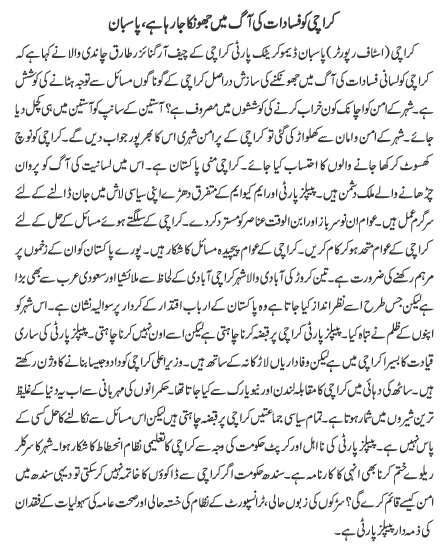 کراچی کو فسادات کی آگ میں جھونکا جارہا ہے، پاسبان
کراچی (اسٹاف رپورٹر) پاسبان ڈیموکریٹک پارٹی کراچی کے چیف آرگنائزر طارق چاندی والا نے کہا ہے کہ
کراچی کو لسانی فسادات کی آگ میں جھونکنے کی سازش دراصل کراچی کے گوناگوں مسائل سے توجہ ہٹانے کی کوشش
ہے۔ شہر کے امن کو اچانک کون خراب کرنے کی کوششوں میں مصروف ہے؟ آستین کے سانپ کو آستین میں ہی کچل دیا
جائے۔ شہر کے امن و امان سے کھلواڑ کی گئی تو کراچی کے پر امن شہری اس کا بھرپور جواب دیں گے۔ کراچی کو نوچ
کھسوٹ کر کھا جانے والوں کا احتساب کیا جائے۔ کراچی منی پاکستان ہے۔ اس میں لسانیت کی آگ کو پروان
چڑھانے والے ملک دشمن ہیں۔ پیپلز پارٹی اور ایم کیو ایم کے متفرق دھڑے اپنی سیاسی لاش میں جان ڈالنے کے لئے
سرگرم عمل ہیں۔ عوام ان نوسرباز اور ابن الوقت عناصر کو مسترد کردے۔ کراچی کے سلگتے ہوئے مسائل کے حل کے لئے
کراچی کے عوام متحد ہو کر کام کریں۔ کراچی کے عوام پیچیدہ مسائل کا شکار ہیں۔ پورے پاکستان کو ان کے زخموں پر
مرہم رکھنے کی ضرورت ہے۔ تین کروڑ کی آبادی والا شہر کراچی آبادی کے لحاظ سے ملائشیا اور سعودی عرب سے بھی بڑا
ہے لیکن جس طرح اسے نظر انداز کیا جاتا ہے وہ پاکستان کے ارباب اقتدار کے کردار پر سوالیہ نشان ہے۔ اس شہر کو
اپنوں کے ظلم نے تباہ کیا۔ پیپلز پارٹی کراچی پر قبضہ کرنا چاہتی ہے لیکن اسے اون نہیں کرنا چاہتی۔ پیپلز پارٹی کی ساری
قیادت کا بسیرا کراچی میں ہے لیکن وفاداریاں لاڑکانہ کے ساتھ ہیں۔ وزیر اعلی کراچی کو دادو جیسا بنانے کا وژن رکھتے
ہیں۔ ساٹھ کی دہائی میں کراچی کا مقابلہ لندن اور نیویارک سے کیا جاتا تھا۔ حکمرانوں کی مہربانی سے اب یہ دنیا کے غلیظ
ترین شہروں میں شمار ہوتا ہے۔ تمام سیاسی جماعتیں کراچی پر قبضہ چاہتی ہیں لیکن اس مسائل سے نکالنے کا حل کسی کے
پاس نہیں ہے۔ پیپلز پارٹی کی نااہل اور کرپٹ حکومت کی وجہ سے کراچی کا تعلیمی نظام انحطاط کا شکار ہوا۔ شہر کا سرکلر
ریلوے ختم کرنا بھی انہی کا کارنامہ ہے۔ سندھ حکومت اگر کراچی سے ڈاکوؤں کا خاتمہ نہیں کرسکتی تو دیہی سندھ میں
امن کیسے قائم کرے گی؟ سڑکوں کی زبوں حالی، ٹرانسپورٹ کے نظام کی خستہ حالی اور صحت عامہ کی سہولیات کے فقدان
کی ذمہ دار پیپلز پارٹی ہے۔